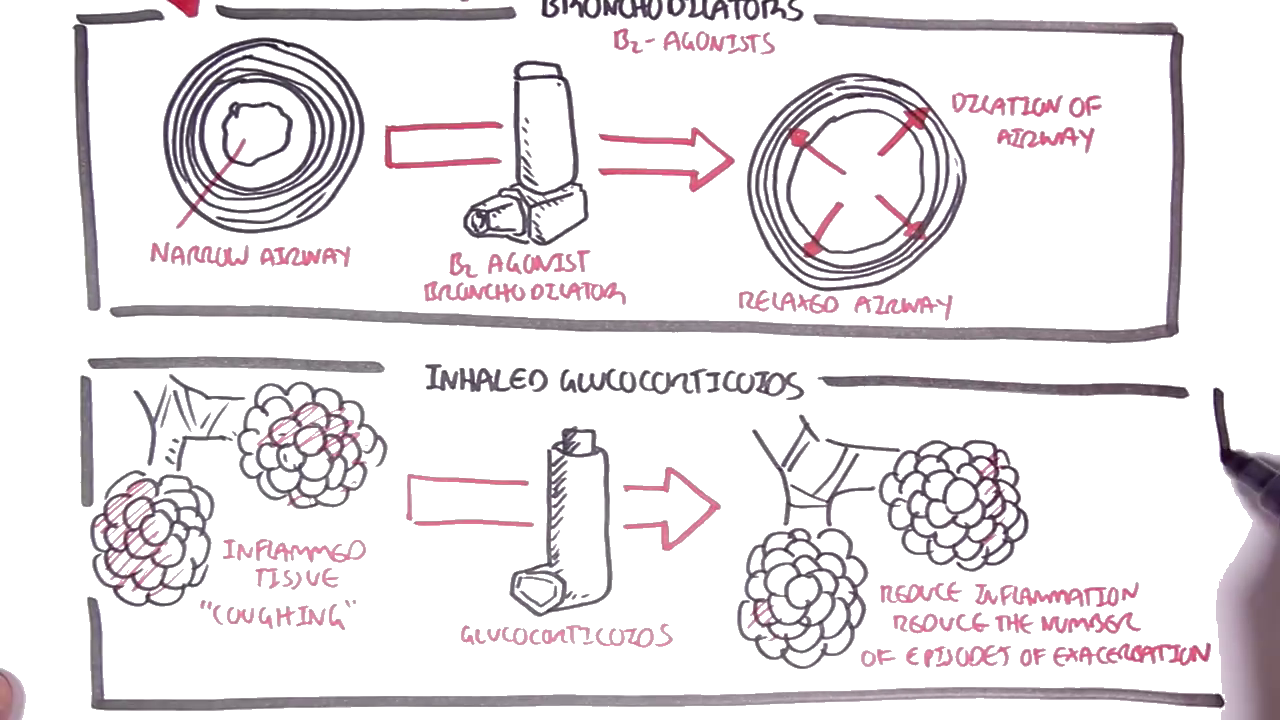 BRONCHODILATORS
B₂- AGONISTS
DILATION OF
AIRWAY
NARROW AIRWAY
B₂ AGONIST
BRONCHODILATOR
RELAXED AIRWAY
INHALED GLUCOCORTICOIDS
INFLAMMED
TISSUE
"COUGHING"
GLUCOCORTICOIDS
REDUCE INFLAMMATION
REDUCE THE NUMBER
OF EPISODES OF EXACERBATION